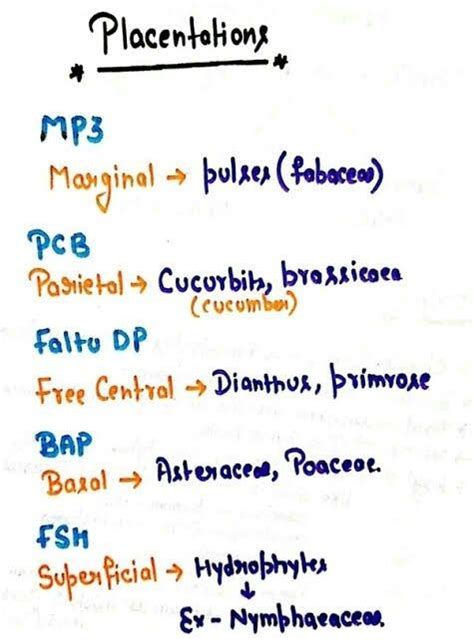 Placentations
MP3
Marginal → pulses (fabaceae)
PCB
Parietal → Cucurbits, brassicaea
(cucumber)
Faltu DP
Free Central → Dianthus, primrose
BAP
Basal → Asteraceae, Poaceae.
FSH
Superficial → Hydrophytes
↓
Ex - Nymphaeaceae.